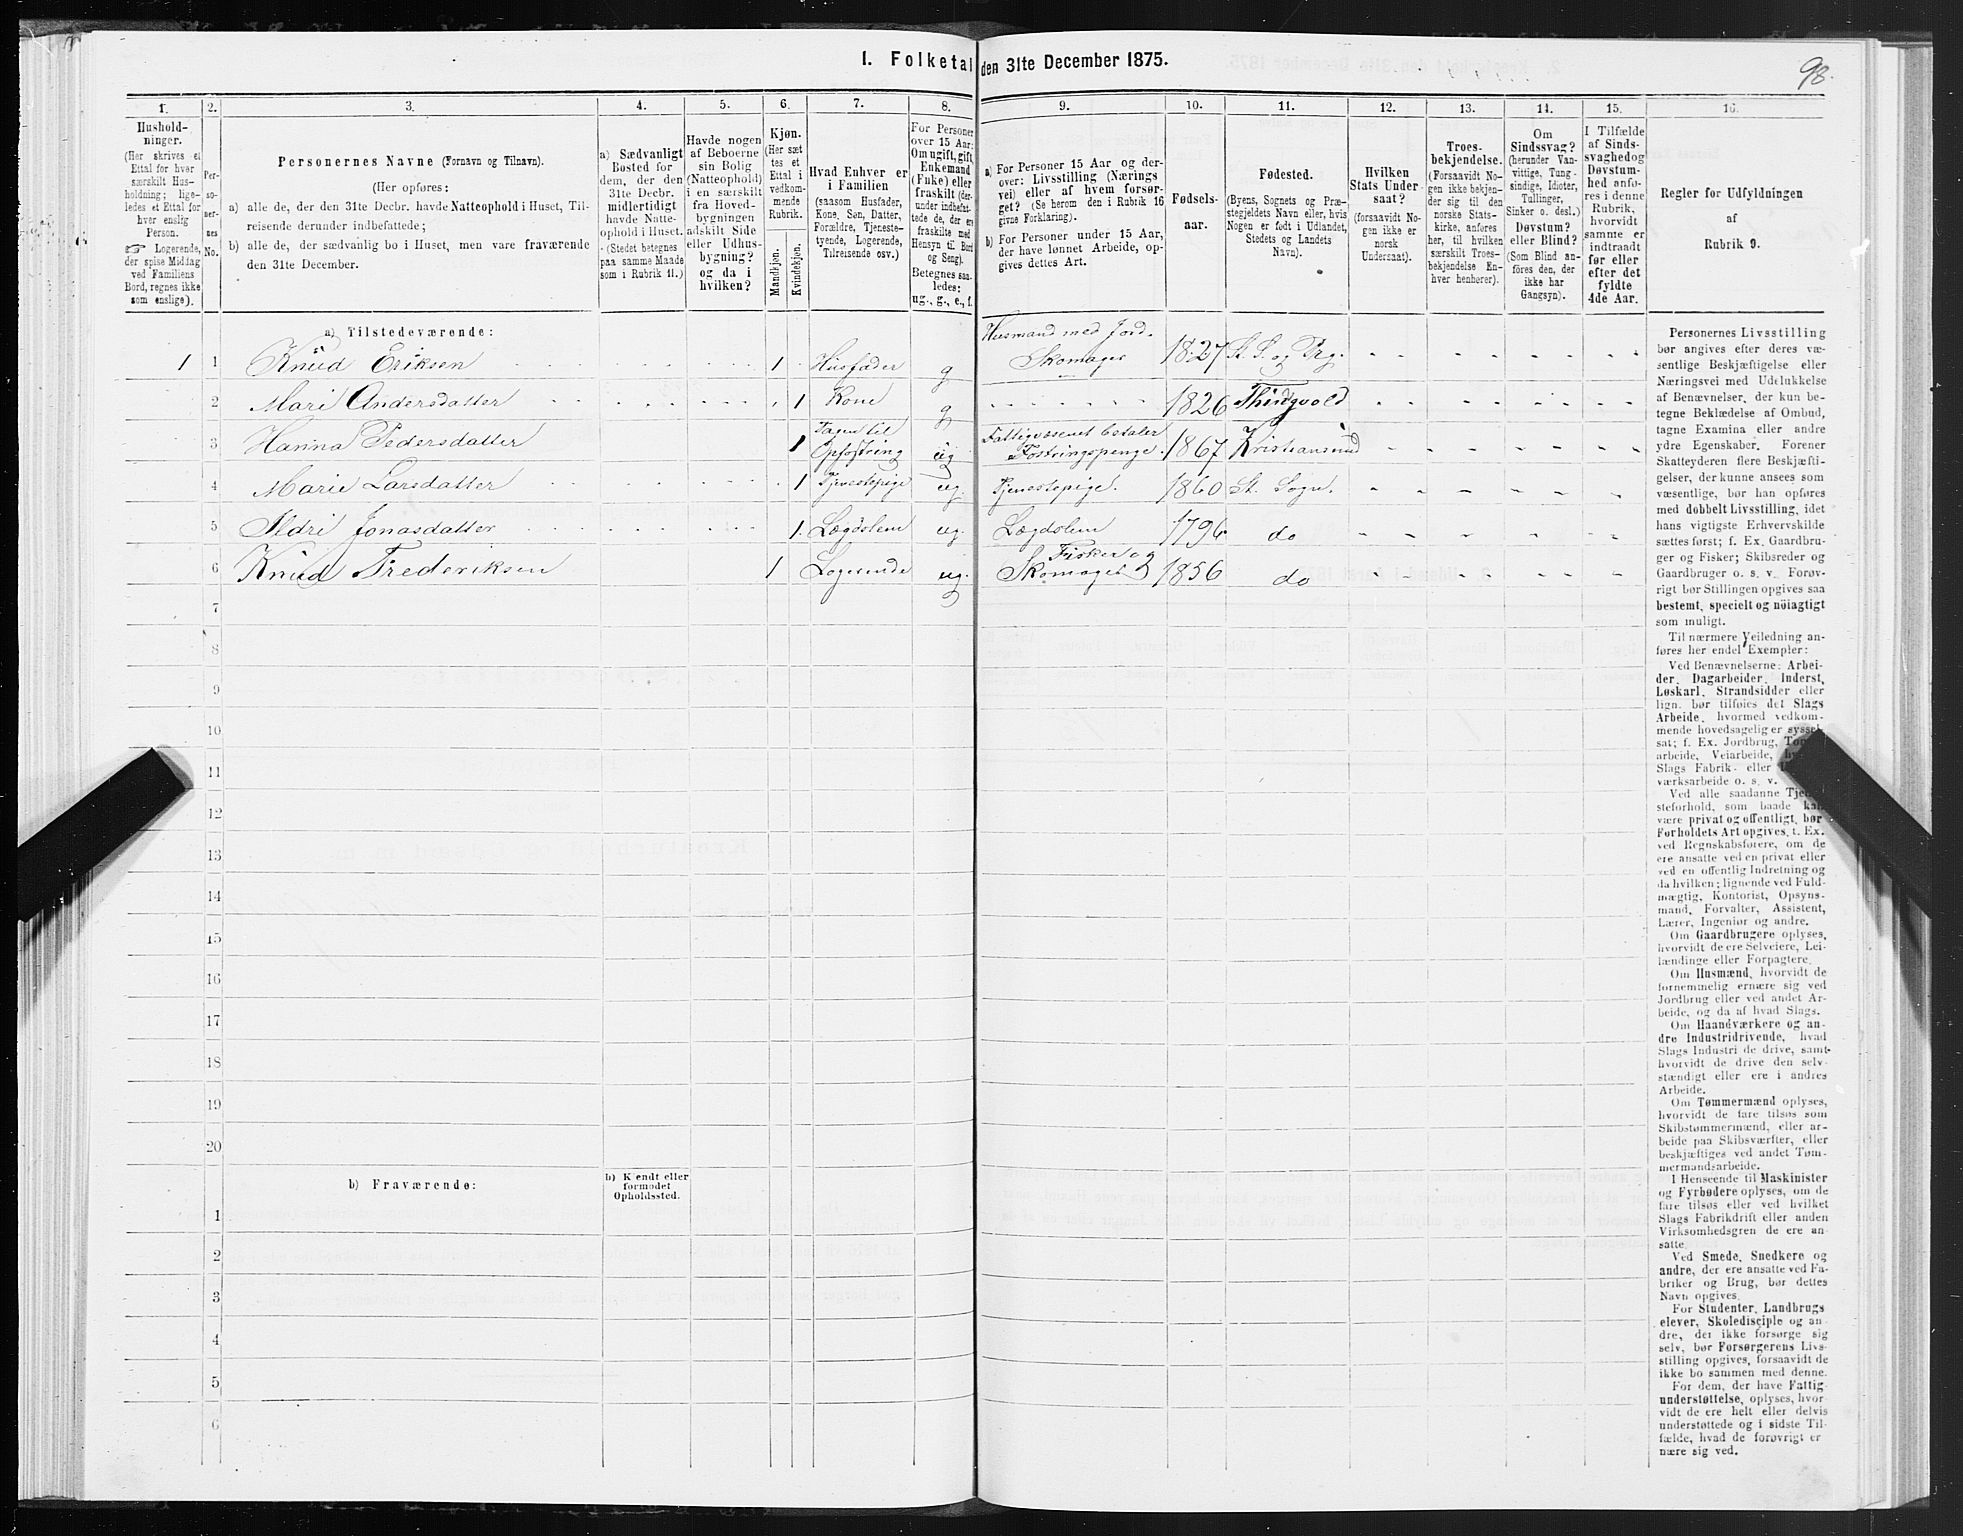 I. Folketal den 31te December 1875.
98.
1. 2. 3. 4. 5. 6. 7. 8. 9. 10. 11. 12. 13. 14. 15. 16.
Hushold-
ninger.
(Her skrives et
Ettal for hver
særskilt Hus-
holdning; lige-
ledes et Ettal for
hver enslig
Person.
☞ Logerende,
der spise Middag
ved Familiens
Bord, regnes ikke
som enslige).
Per-
so-
ner-
nes
No.
Personernes Navne (Fornavn og Tilnavn).
(Her opføres:
a) alle de, der den 31te Decbr. havde Natteophold i Huset, Til-
reisende derunder indbefattede;
b) alle de, der sædvanlig bo i Huset, men vare fraværende
den 31te December.
a) Sædvanligt
Bosted for
dem, der den
31te Decbr.
midlertidigt
havde Natte-
ophold i Huset.
(Stedet betegnes
paa samme Maade
som i Rubrik 11.)
Havde nogen
af Beboerne
sin Bolig
(Natteophold)
i en særskilt
fra Hoved-
bygningen
adskilt Side
eller Udhus-
bygning?
og da i
hvilken?
Kjøn.
(Her sæt
tes et
Ettal i
vedkom-
mende
Rubrik.
Mandkjøn.
Kvindekjøn.
Hvad Enhver er
i Familien
(saasom Husfader,
Kone, Søn, Datter,
Forældre, Tjeneste-
tyende, Logerende,
Tilreisende osv.)
For Personer
over 15 Aar:
Om ugift, gift,
Enkemand
(Enke) eller
fraskilt (der-
under indbefat-
tede de, der ere
fraskilte med
Hensyn til Bord
og Seng).
Betegnes saa-
ledes:
ug., g., e., f.
a) For Personer 15 Aar og der-
over: Livsstilling (Nærings
vei) eller af hvem forsør-
get? (Se herom den i Rubrik 16
givne Forklaring).
b) For Personer under 15 Aar,
der have lønnet Arbeide, op-
gives dettes Art.
Fødsels-
aar.
Fødested.
(Byens, Sognets og Præ-
stegjeldets Navn eller, hvis
Nogen er født i Udlandet,
Stedets og Landets
Navn).
Hvilken
Stats Under-
saat?
(forsaavidt No-
gen ikke er
norsk
Undersaat).
Troes-
bekjendelse.
(Forsaavidt No-
gen ikke bekjen-
der sig til den
norske Stats-
kirke, anføres
her, til hvilken
særskilt Troes-
bekjendelse En-
hver henhører).
Om
Sindssvag?
(herunder Van-
vittige, Tung-
sindige, Idioter,
Tullinger,
Sinker o. desl.)
Døvstum?
eller Blind?
(Som Blind an-
føres den, der
ikke har
Gangsyn).
I Tilfælde
af Sinds-
svaghed og
Døvstum-
hed anfø-
res i denne
Rubrik,
hvorvidt
samme er
indtraadt
før eller
efter det
fyldte
4de Aar.
Regler for Udfyldningen
af
Rubrik 9.
a) Tilstedeværende:
1 1 Knud Eriksen 1 Husfader g Husmand med Jord. Skomager 1827 St. S. og Prg.
2 Mari Andersdatter 1 Kone g 1826 Thingvold
3 Hanna Pedersdatter 1 Tagen til Opfostring ug Fattigvæsenet betaler Fostringspenge. 1867 Kristiansund
4 Marie Larsdatter 1 Tjenestepige ug. Tjenestepige. 1860 St. Sogn.
5 Ildri Jonasdatter 1. Lægdslem ug. Lægdslem 1796 do
6 Knud Frederiksen 1 Logerende ug. Fisker og Skomager 1856 do
7
8
9
10
11
12
13
14
15
16
17
18
19
20
b) Fraværende:
b) Kjendt eller
formodet
Opholdssted.
1
2
3
4
5
6
Personernes Livsstilling
bør angives efter deres væ-
sentlige Beskjæftigelse eller
Næringsvei med Udelukkelse
af Benævnelser, der kun be-
tegne Beklædelse af Ombud,
tagne Examina eller andre
ydre Egenskaber. Forener
Skatteyderen flere Beskjæfti-
gelser, der kunne ansees som
væsentlige, bør han opføres
med dobbelt Livsstilling, idet
hans vigtigste Erhvervskilde
sættes først; f. Ex. Gaardbru-
ger og Fisker; Skibsreder og
Gaardbruger o. s. v. Forøv-
rigt bør Stillingen opgives saa
bestemt, specielt og nøiagtigt
som muligt.
Til nærmere Veiledning an-
føres her endel Exempler:
Ved Benævnelserne: Arbei-
der, Dagarbeider, Inderst,
Løskarl, Strandsidder eller
lign. bør tilføies det Slags
Arbeide, hvormed vedkom-
mende hovedsagelig er syssel-
sat; f. Ex. Jordbrug,
arbeide, Veiarbeide,
Slags Fabrik- eller
værksarbeide o. s. v.
Ved alle saadanne
steforhold, som baade kan
være privat og offentligt, bør
Forholdets Art opgives, t. Ex.
ved Regnskabsførere, om de
ere ansatte ved en privat eller
ved en offentlig Indretning og
da hvilken; lignende ved Fuld-
mægtig, Kontorist, Opsyns-
mand, Forvalter, Assistent,
Lærer, Ingeniør og andre.
Om Gaardbrugere oplyses,
hvorvidt de ere Selveiere, Lei-
lændinge eller Forpagtere.
Om Husmænd, hvorvidt de
fornemmelig ernære sig ved
Jordbrug eller ved andet Ar-
beide, og da af hvad Slags.
Om Haandværkere og an-
dre Industridrivende, hvad
Slags Industri de drive, samt
hvorvidt de drive den selv-
stændigt eller ere i andres
Arbeide.
Om Tømmermænd oplyses,
hvorvidt de fare tilsøs som
Skibstømmermænd, eller ar-
beide paa Skibsværfter, eller
beskjæftiges ved andet Tøm-
mermandsarbeide.
I Henseende til Maskinister
og Fyrbødere oplyses, om de
fare tilsøs eller ved hvilket
Slags Fabrikdrift eller anden
Virksomhedsgren de ere an-
satte.
Ved Smede, Snedkere og
andre, der ere ansatte ved Fa-
briker og Brug, bør dettes
Navn opgives.
For Studenter, Landbrugs
elever, Skoledisciple og an-
dre, der ikke forsørge sig
selv, bør Forsørgerens Livs-
stilling opgives, forsaavidt de
ikke bo sammen med denne.
For dem, der have Fattig-
understøttelse, oplyses, hvor-
vidt de ere helt eller delvis
understøttede og i sidste Til-
fælde, hvad de forøvrigt er
nære sig ved.